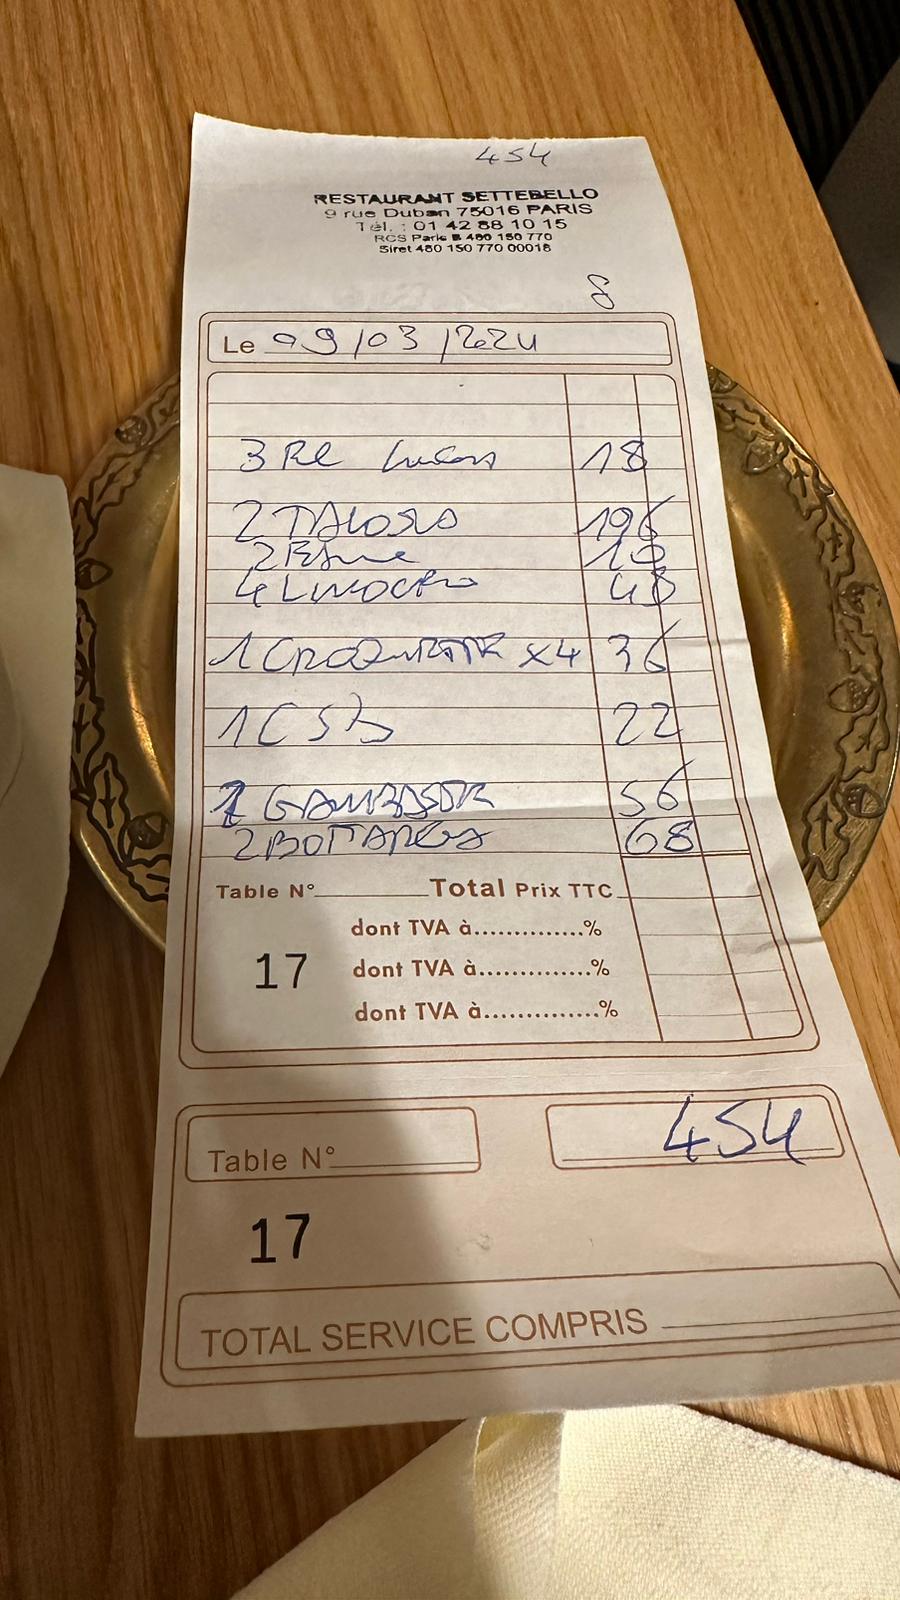 454
RESTAURANT SETTEBELLO
9 rue Duban 75016 PARIS
Tél. : 01 42 88 10 15
RCS Paris B 480 150 770
Siret 480 150 770 00018
8
Le 09/03/2024
3 18
2 TALOSO 196
2 10
4 48
1 x4 36
1 C S B 22
2 56
2 BOTTARGA 68
Table N° Total Prix TTC
dont TVA à..............%
17 dont TVA à..............%
dont TVA à..............%
454
Table N°
17
TOTAL SERVICE COMPRIS